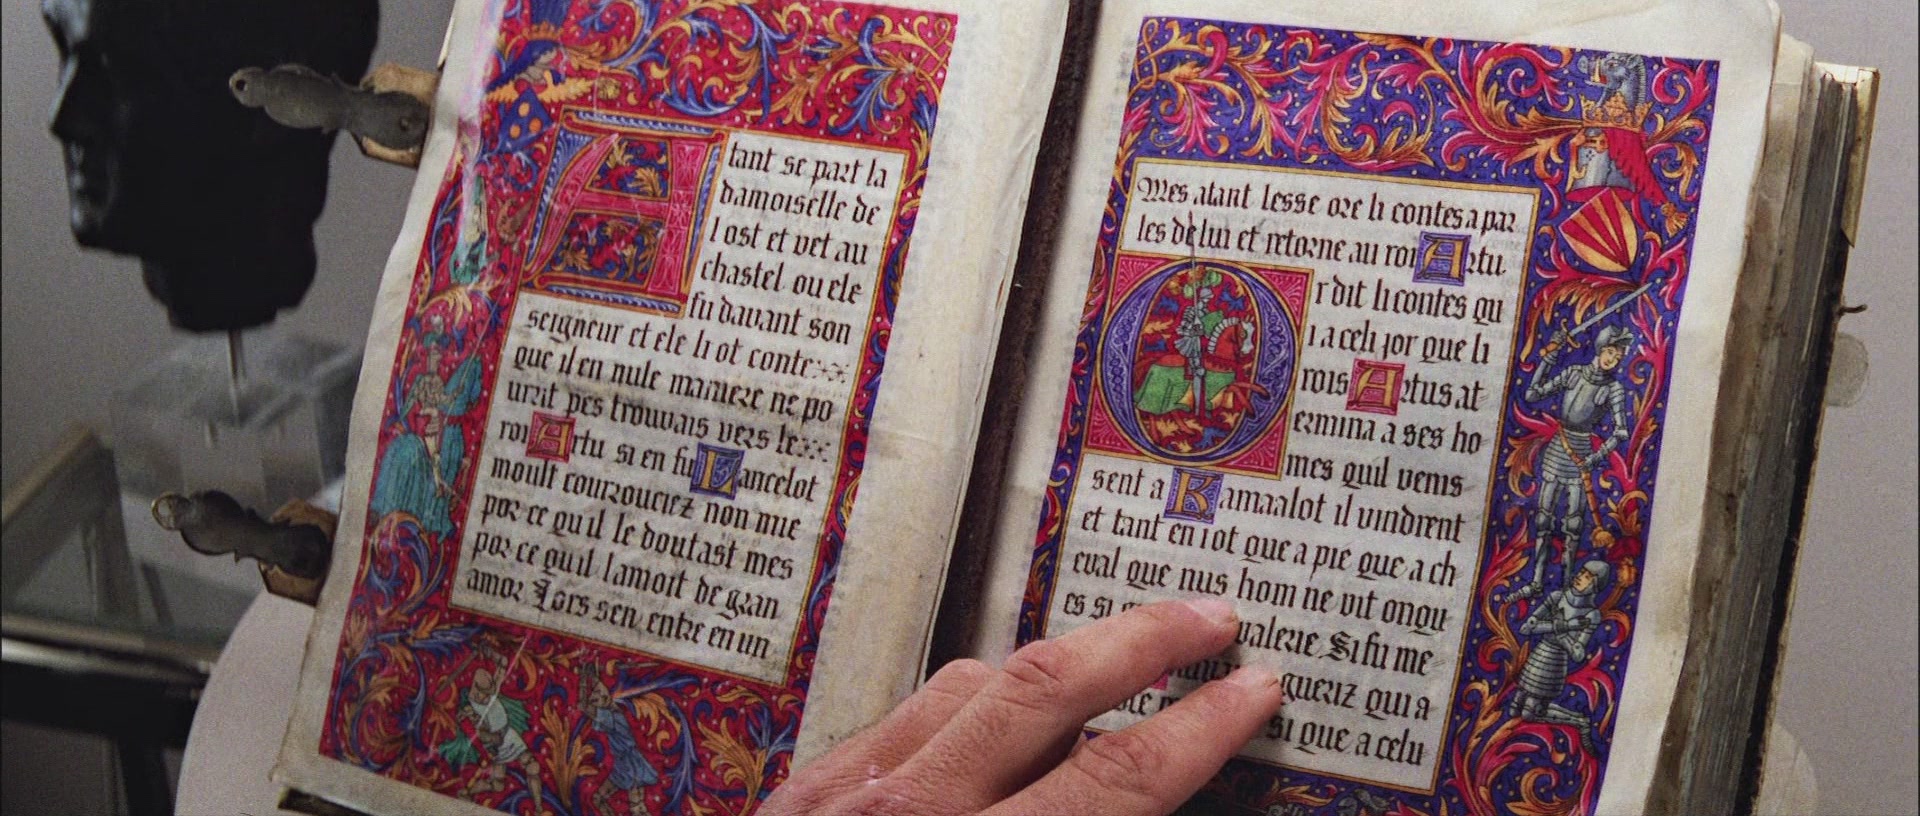 Atant se part la
damoiselle de
l ost et vet au
chastel ou ele
fu davant son
seigneur et ele li ot conte
que il en nule maniere ne po
urrit pes trouvais vers le
roi Artu si en fu Lancelot
moult courrouciez non mie
por ce qu il le doutast mes
por ce qu il l amoit de gran
amor Lors s en entre en un
Mes atant lesse ore li contes a par
les de lui et retorne au roi Artu
Or dit li contes qu
i a celi jor que li
rois Artus at
ermina a ses ho
mes quil venis
sent a Kamaalot il vindrent
et tant en i ot que a pie que a ch
eval que nus hom ne vit onqu
es si valerie Si fu me
gueriz qui a
si que a celu